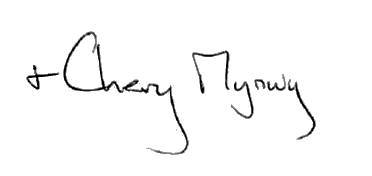 + Cherry Mynwy